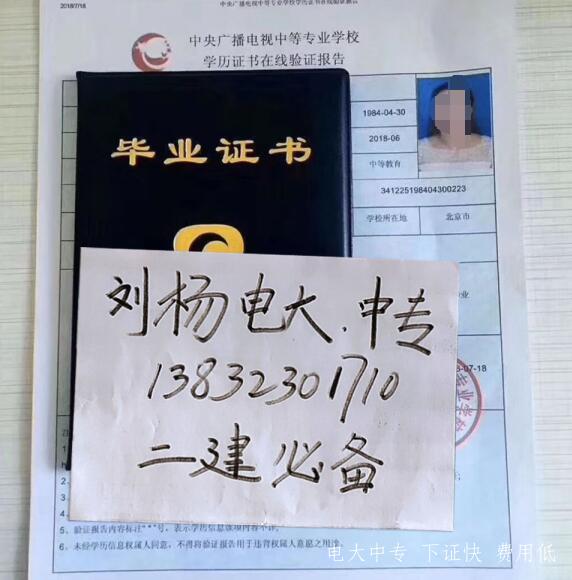 2018/7/18
中央广播电视中等专业学校学历证书在线验证报告
中央广播电视中等专业学校
学历证书在线验证报告
1984-04-30
2018-06
中等教育
341225198404300223
学校所在地 北京市
毕业证书
刘杨电大.中专
13832301710
二建必备
业
-07-18
专业学校
5、验证报告内容标注“*”号，表示学历信息该项内容不详。
6、未经学历信息权属人同意，不得将验证报告用于违背权属人意愿之用途。
电大中专 下证快 费用低